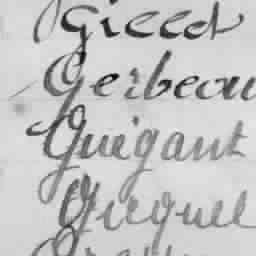 Gicect
Gerbeau
Guégant
Gicquel